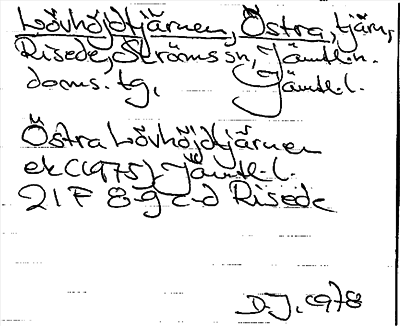 Lövhöjdtjärnen, Östra, tjärn,
Risede, Ströms sn, Jämtl. n.
doms. tg, Jämtl. l.
Östra Lövhöjdtjärnen
ek (1975) Jämtl. l.
21 F 8-g c-d Risede
D.J. 1978